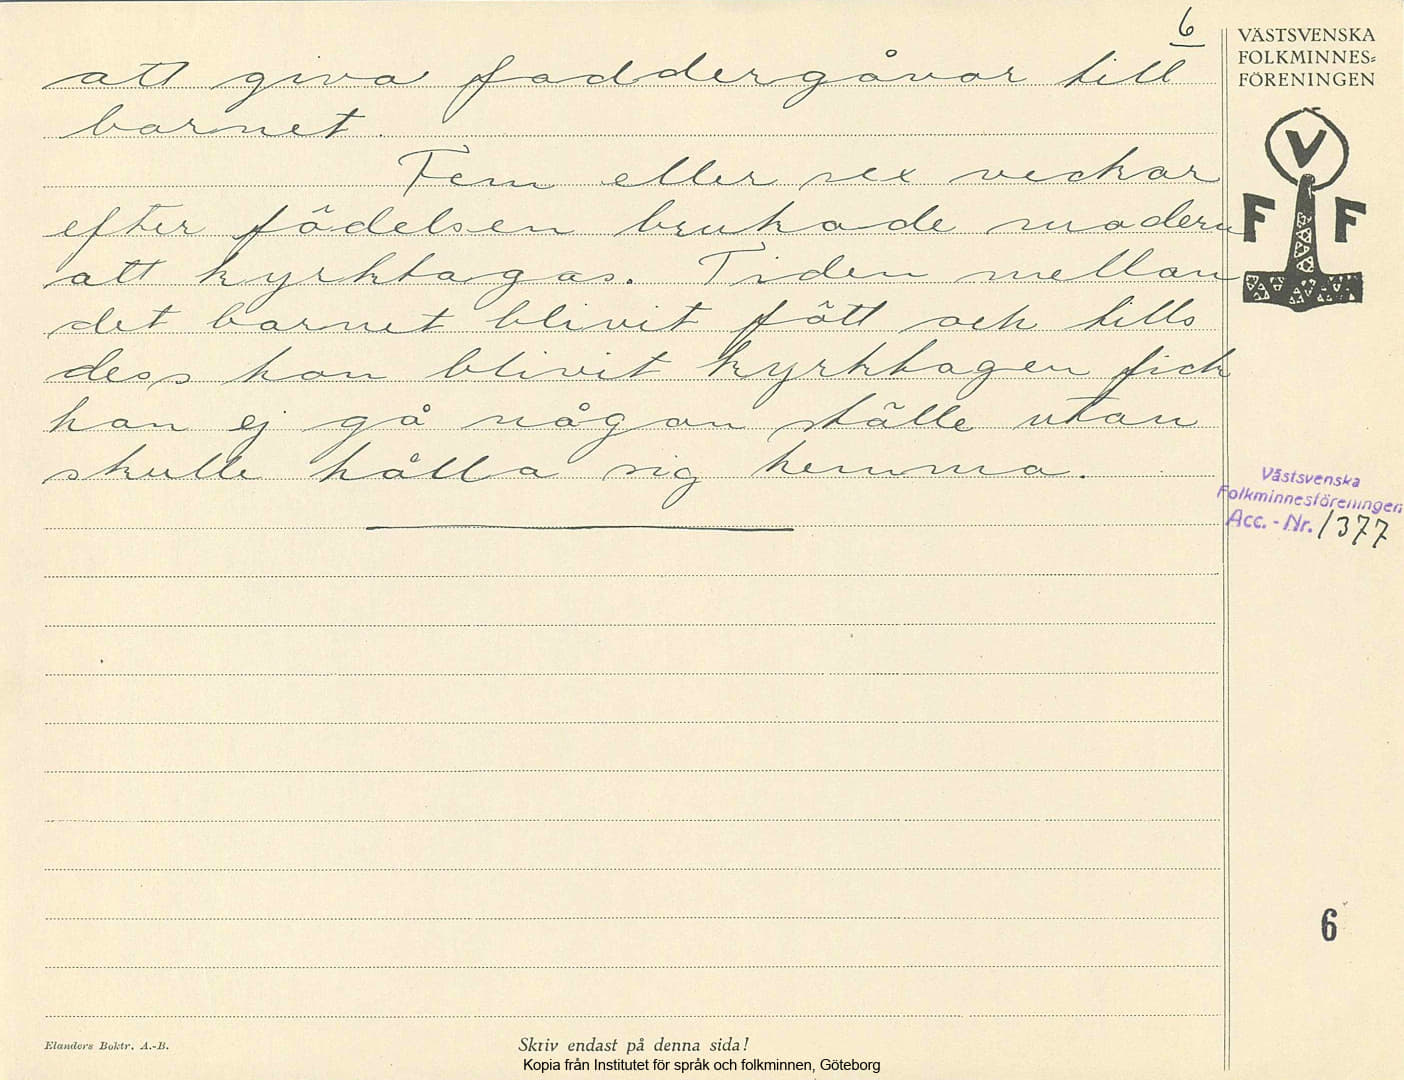 6
att giva faddergåvor till
barnet.
Fem eller sex veckor
efter födelsen brukade modern
att kyrktagas. Tiden mellan
det barnet blivit fött och tills
dess hon blivit kyrktagen fick
hon ej gå någon ställe utan
skulle hålla sig hemma.
VÄSTSVENSKA
FOLKMINNES=
FÖRENINGEN
V
F F
Västsvenska
Folkminnesföreningen
Acc. - Nr. 1377
6
Elanders Boktr. A.-B.
Skriv endast på denna sida!
Kopia från Institutet för språk och folkminnen, Göteborg